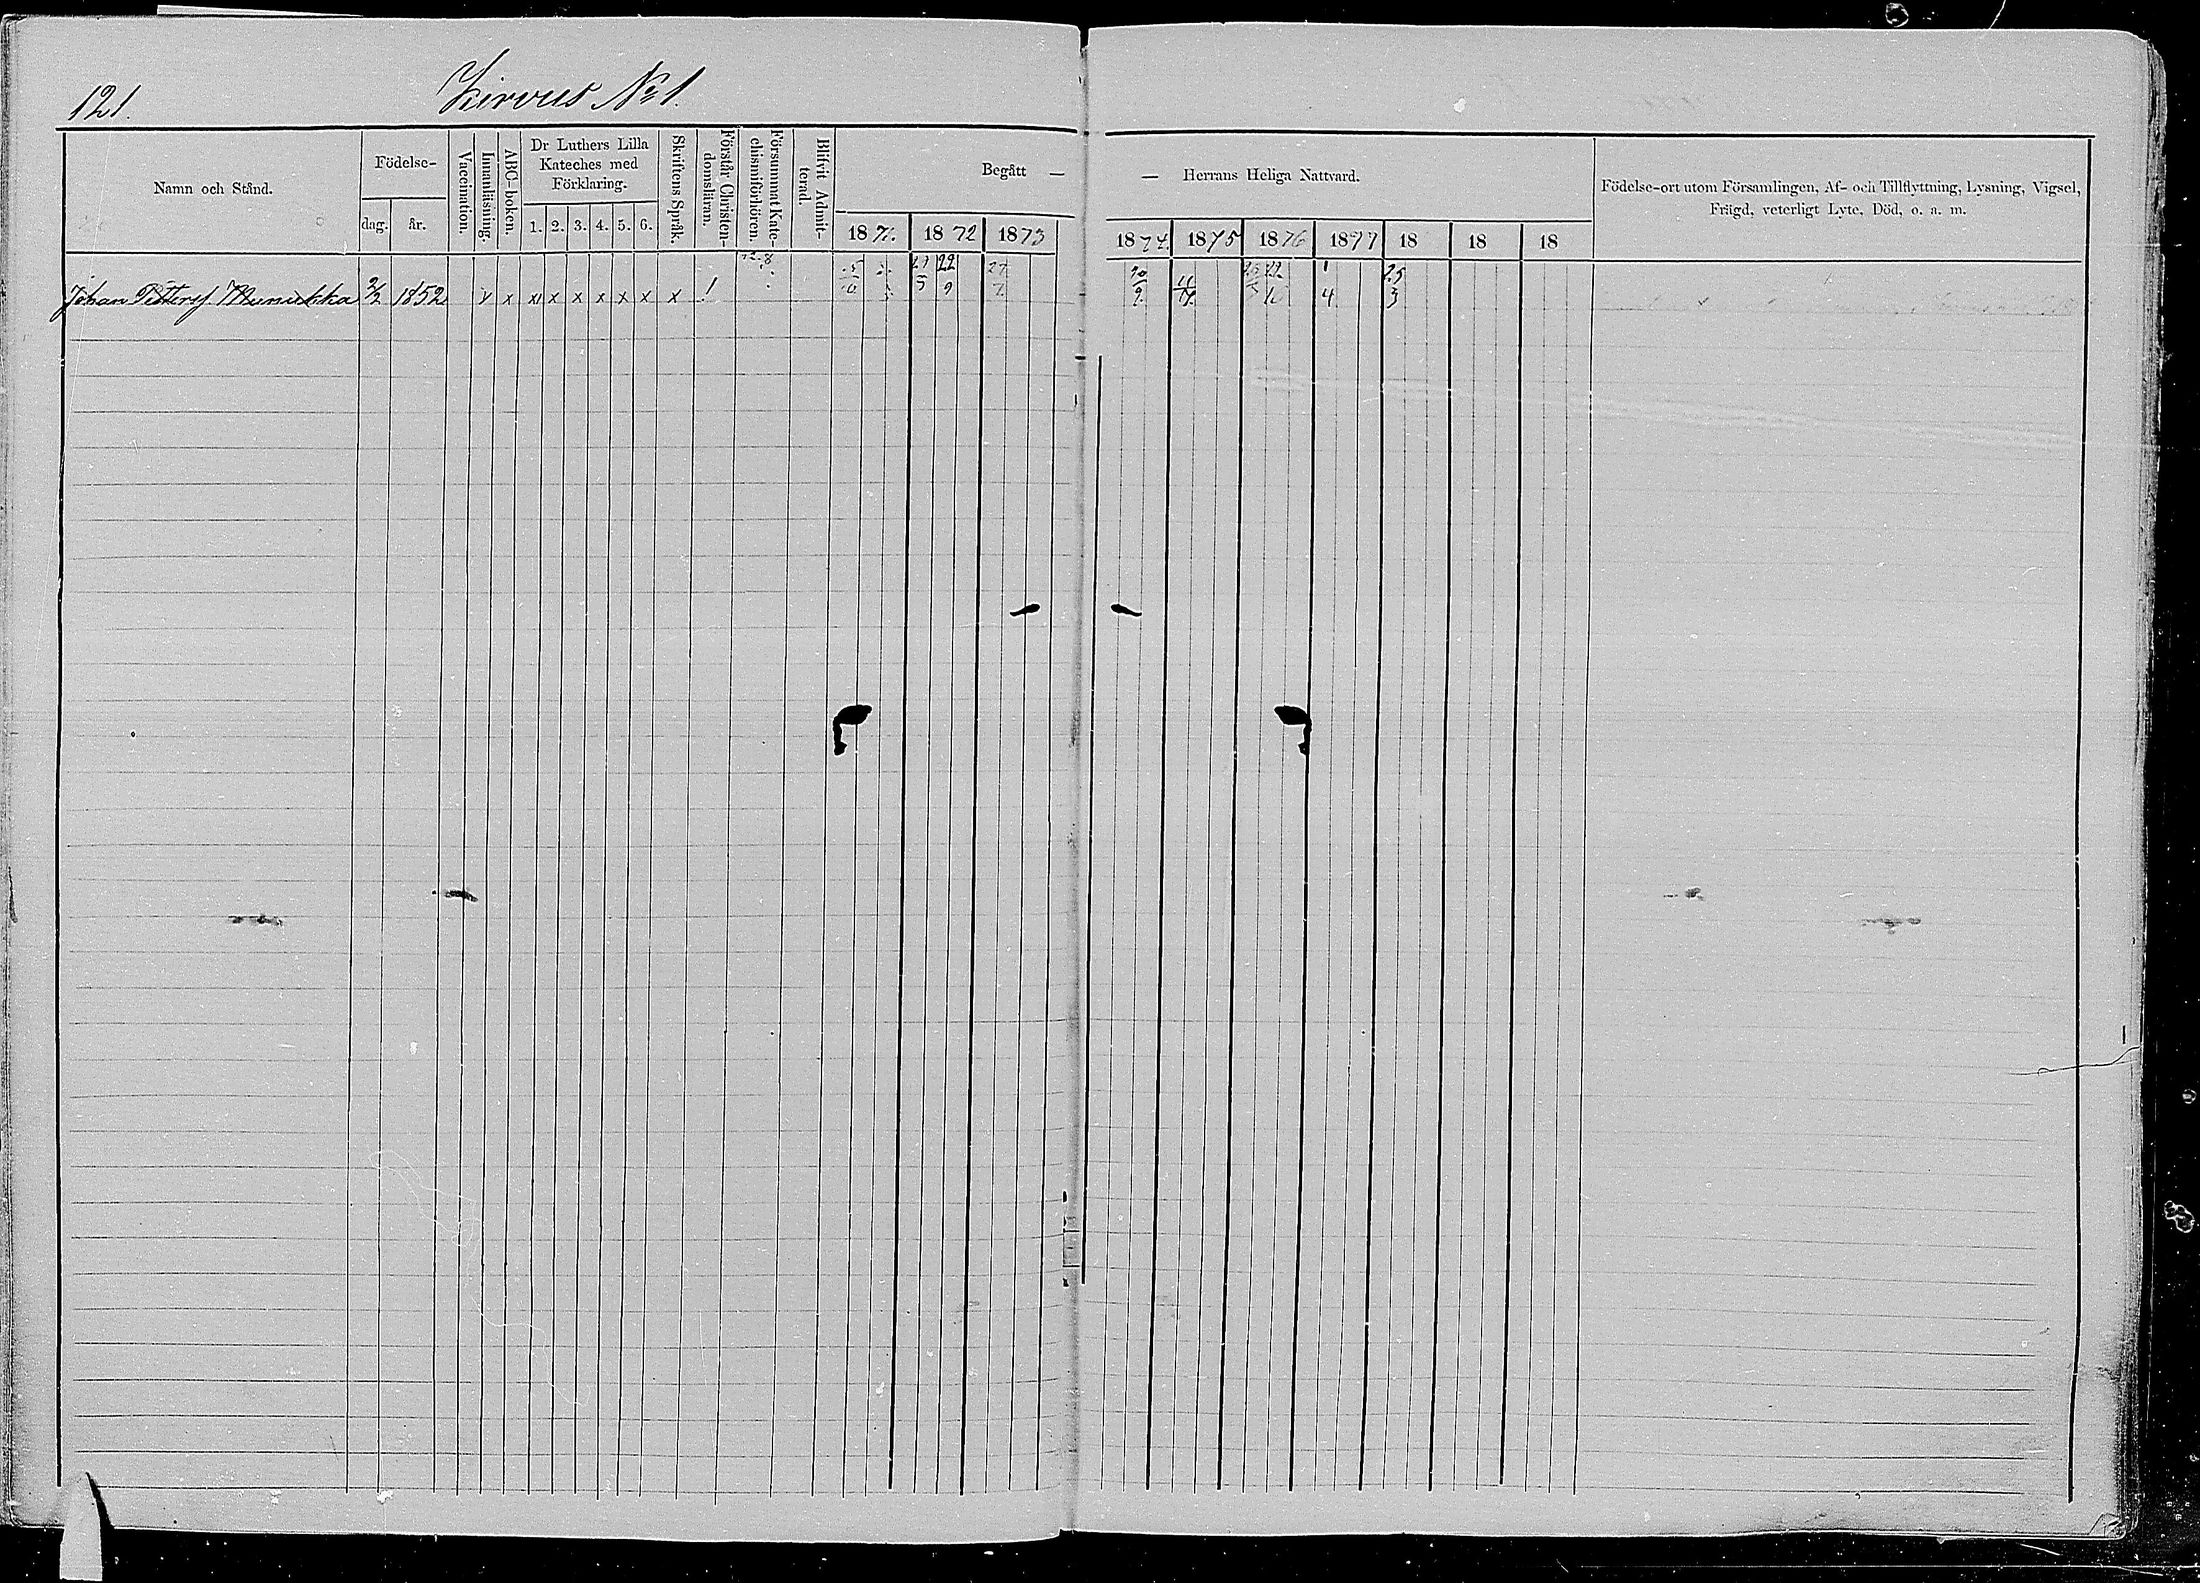 121.
Kirvus No 1.
Namn och Stånd.
Födelse-
dag. år.
Vaccination.
Innanläsning.
ABC-boken.
Dr Luthers Lilla
Kateches med
Förklaring.
1. 2. 3. 4. 5. 6.
Skriftens Språk.
Förstår Christen-
domsläran.
Försummat Kate-
chismiförhören.
Blifvit Admit-
terad.
Begått —
1871. 1872 1873
— Herrans Heliga Nattvard.
1874. 1875 1876 1877 18 18 18
Födelse-ort utom Församlingen, Af- och Tillflyttning, Lysning, Vigsel,
Frägd, veterligt Lyte, Död, o. a. m.
Johan Pettersf 2/2 1852 x x x x x x x x